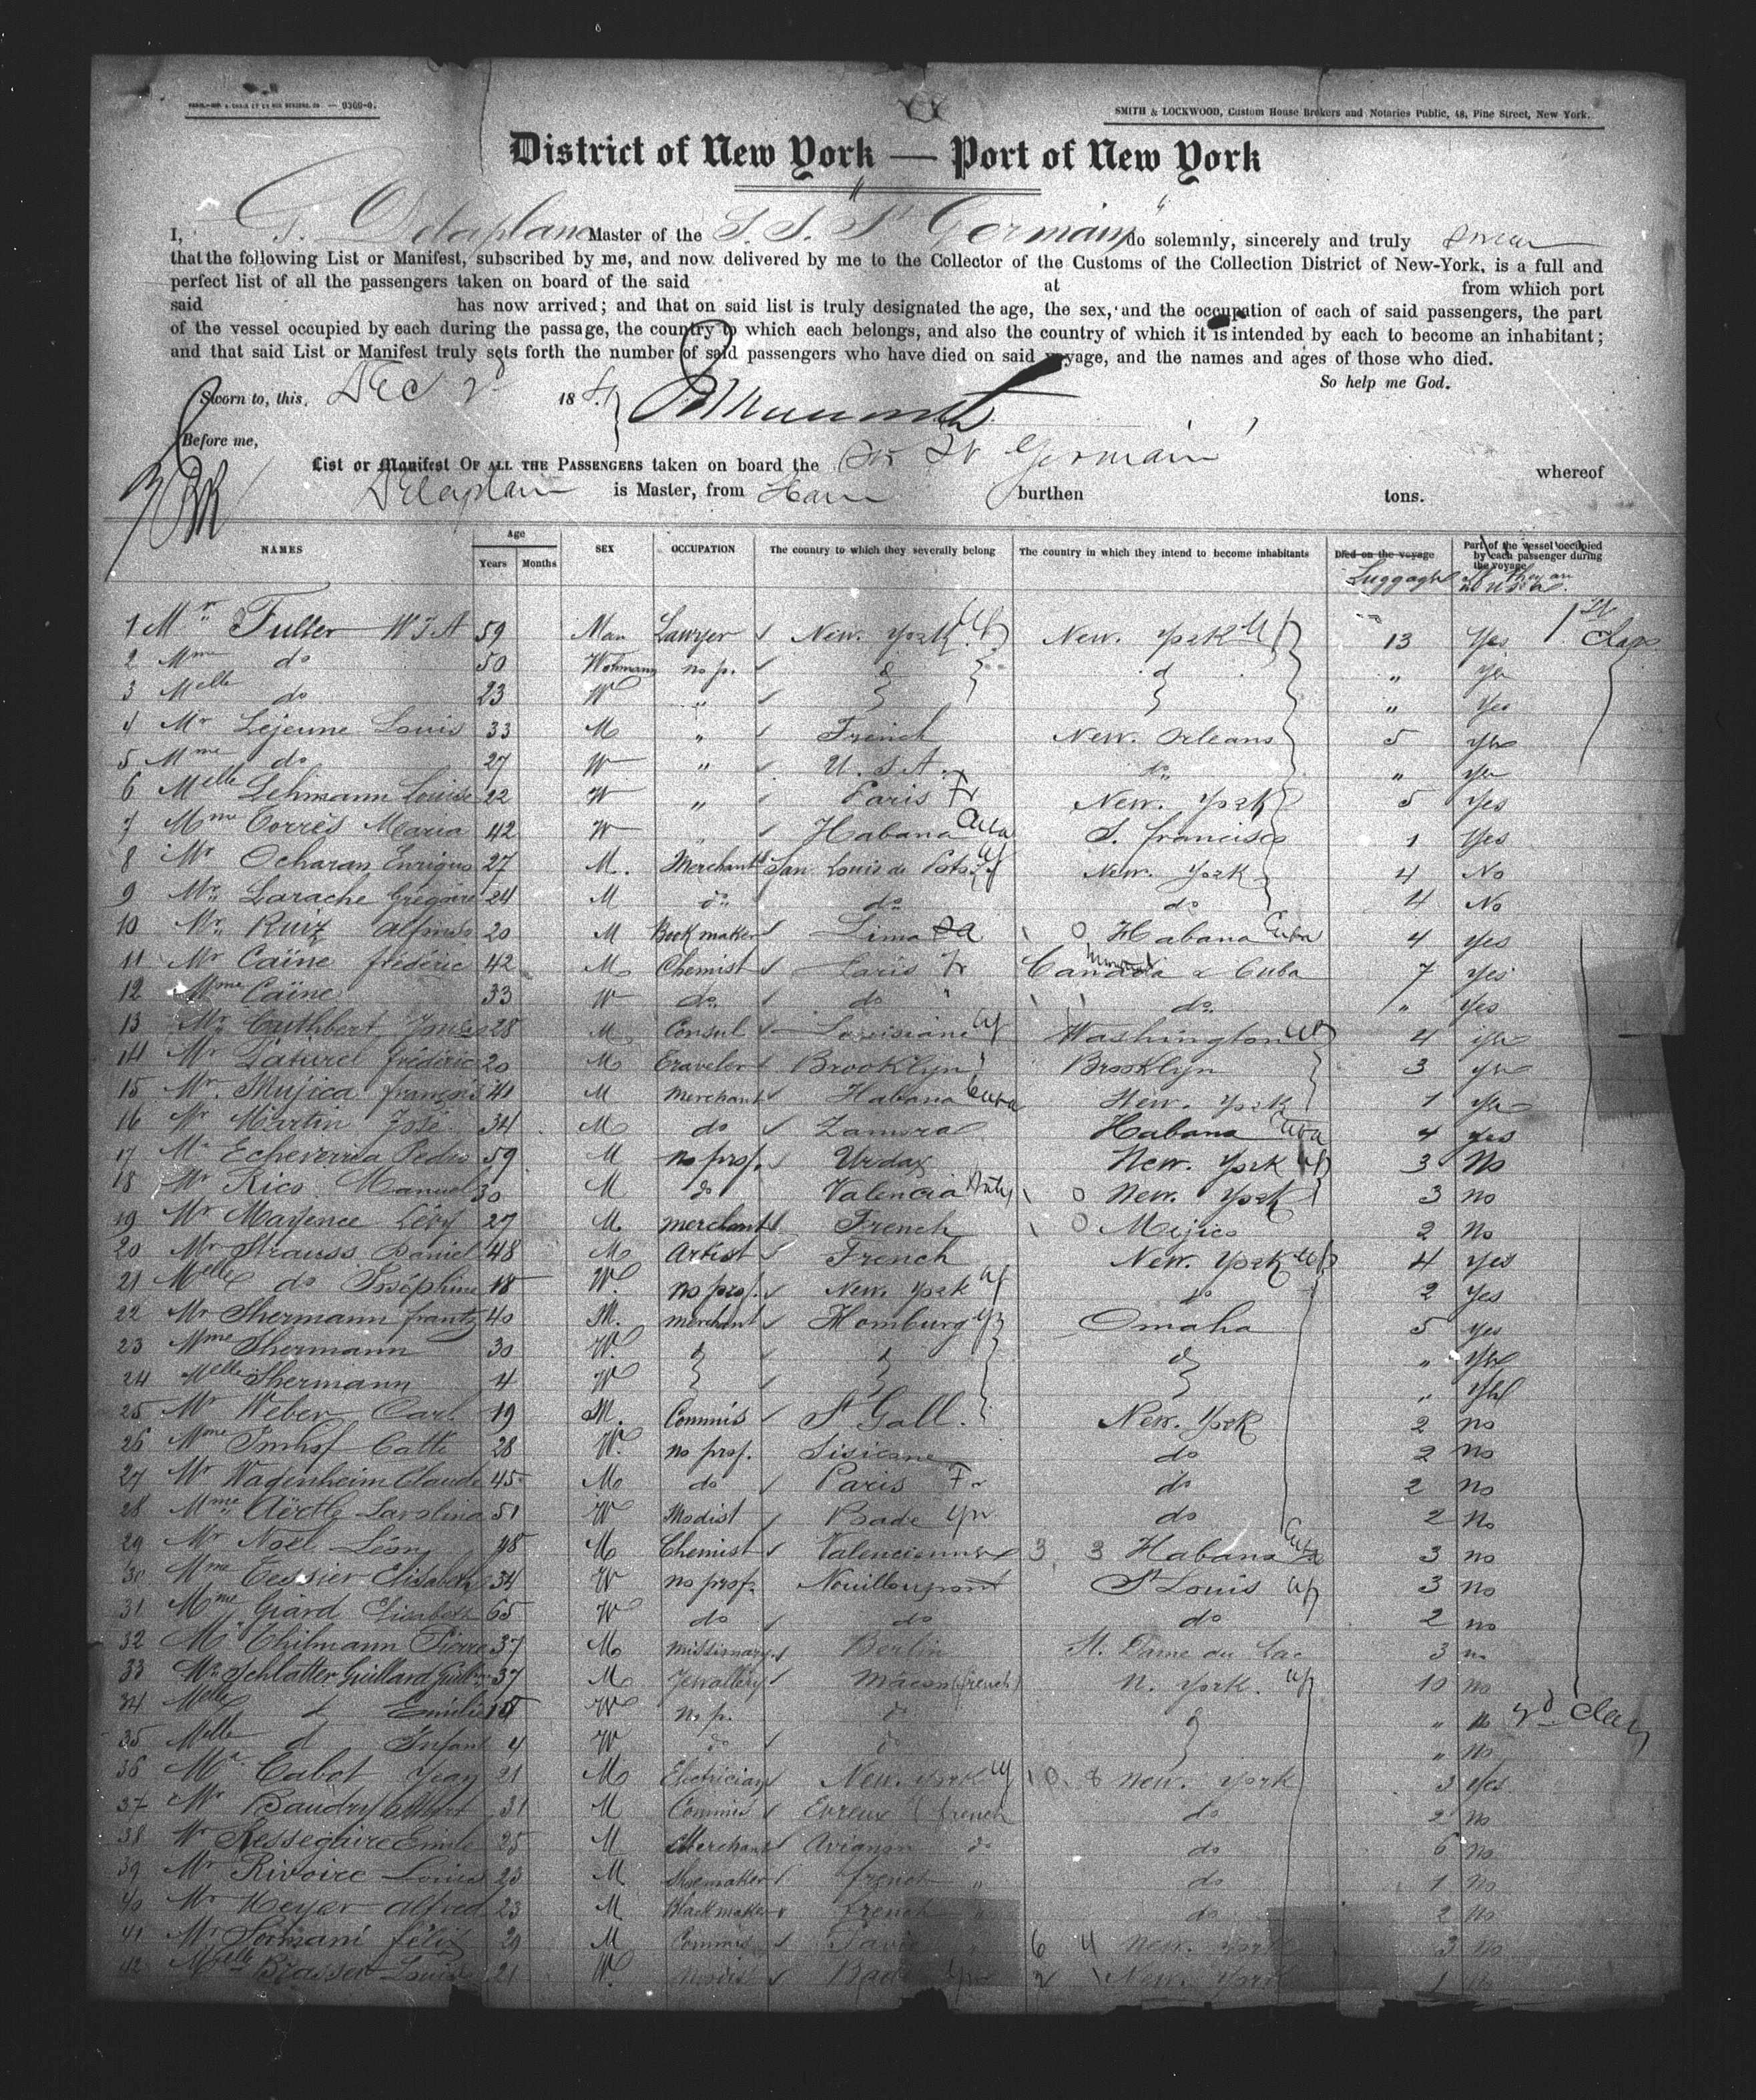 — 9369-9.
SMITH & LOCKWOOD, Custom House Brokers and Notaries Public, 48, Pine Street, New York.
District of New York — Port of New York
I, G. Delaplane Master of the S. S. "St Germain" do solemnly, sincerely and truly swear
that the following List or Manifest, subscribed by me, and now delivered by me to the Collector of the Customs of the Collection District of New-York, is a full and
perfect list of all the passengers taken on board of the said at from which port
said has now arrived; and that on said list is truly designated the age, the sex, and the occupation of each of said passengers, the part
of the vessel occupied by each during the passage, the country to which each belongs, and also the country of which it is intended by each to become an inhabitant;
and that said List or Manifest truly sets forth the number of said passengers who have died on said voyage, and the names and ages of those who died.
So help me God.
Sworn to, this, Dec 188
Before me,
List or Manifest OF ALL THE PASSENGERS taken on board the St Germain whereof
Delaplane is Master, from burthen tons.
NAMES Age Years Months SEX OCCUPATION The country to which they severally belong The country in which they intend to become inhabitants Died on the voyage Part of the vessel occupied by each passenger during the voyage
Luggaghe if they an no U S a.
1 Mr Fuller W 59 Man Lawyer New. York New. York 13 Yes 1st Class
2 Mme do 50 Wohmann no p. d d " Yes
3 Melle do 23 W " " Yes
4 Mr Lejeune Louis 33 M " French New. Orleans 5 Yes
5 Mme do 27 W " U. S A. do " Yes
6 Melle Lehmann Louise 22 W " Paris Fr New. York 5 Yes
7 Mme Torrès Maria 42 W " Habana Cuba S. francisco 1 Yes
8 Mr Ocharan Enrique 27 M. Merchant San Louis de Potosi New. York 4 No
9 Mr Larache Grégoire 24 M do do do 4 No
10 Mr Ruiz alfredo 20 M Bookmaker Lima O Habana Cuba 4 yes
11 Mr Caïne frédéric 42 M Chemist Paris Fr Canada & Cuba 7 yes
12 Mme Caïne 33 W do do do " Yes
13 Mr Cuthbert Jones 28 M Consul Louisiane Washington 4 yes
14 Mr Paturel frédéric 20 M Traveler Brooklyn Brooklyn 3 yes
15 Mr Mujica françois 41 M merchant Habana Cuba New. York 1 Yes
16 Mr Martin José 34 M do Zamora Habana Cuba 4 yes
17 Mr Echeverria Pedro 59 M no prof. Urdax New. York 3 No
18 Mr Rico Manuel 30 M do Valencia O New. York 3 no
19 Mr Mayence Lévy 27 M merchant French O Mejico 2 No
20 Mr Strauss Daniel 48 M Artist French New. York 4 yes
21 Melle do Joséphine 18 W. no prof. New. York do 2 Yes
22 Mr Shermann frantz 40 M. merchant Homburg Omaha 5 yes
23 Mme Shermann 30 W. d d d " Yes
24 Melle Shermann 4 W " Yes
25 Mr Weber Carl 19 M. Commis St Gall. New. York 2 no
26 Mme Imhof Catte 28 W. no prof. do 2 no
27 Mr Wagenheim Claude 45 M do Paris Fr do 2 no
28 Mme Carolina 51 W Modist Bade do 2 no
29 Mr Noël Léon 48 M Chemist Valenciennes 3 3 Habana Cuba 3 no
30 Mme Tessier Elisabeth 34 W no prof. Nouillonpont St Louis 3 no
31 Mme Giard Elisabeth 65 W do do do 2 no
32 Mr Thilmann Pierre 37 M missionary Berlin N. Dame du Lac 3 no
33 Mr Schlatter Guillard 37 M Jewallery Macon (french) N. York. 10 no
34 Melle d Emilie W no p. d d " no 2d Class
35 Melle d Infant 4 W do d " no
36 Mr Cabot Jean 21 M Electrician New. York 10. 8 New. York 3 yes
37 Mr Baudry albert 31 M Commis Evreux (french do 2 no
38 Mr Resseguire Emile 25 M Merchant Avignon do do 6 no
39 Mr Rivoire Louis 23 M Shoemaker french " do 1 no
40 Mr Meyer alfred 23 M french " do 2 no
41 Mr Sormani félix 29 M Commis Pavie 6 4 New. York 3 no
42 Melle Brasser Louise 21 W. modist Bade 2 1 New. York 1 no